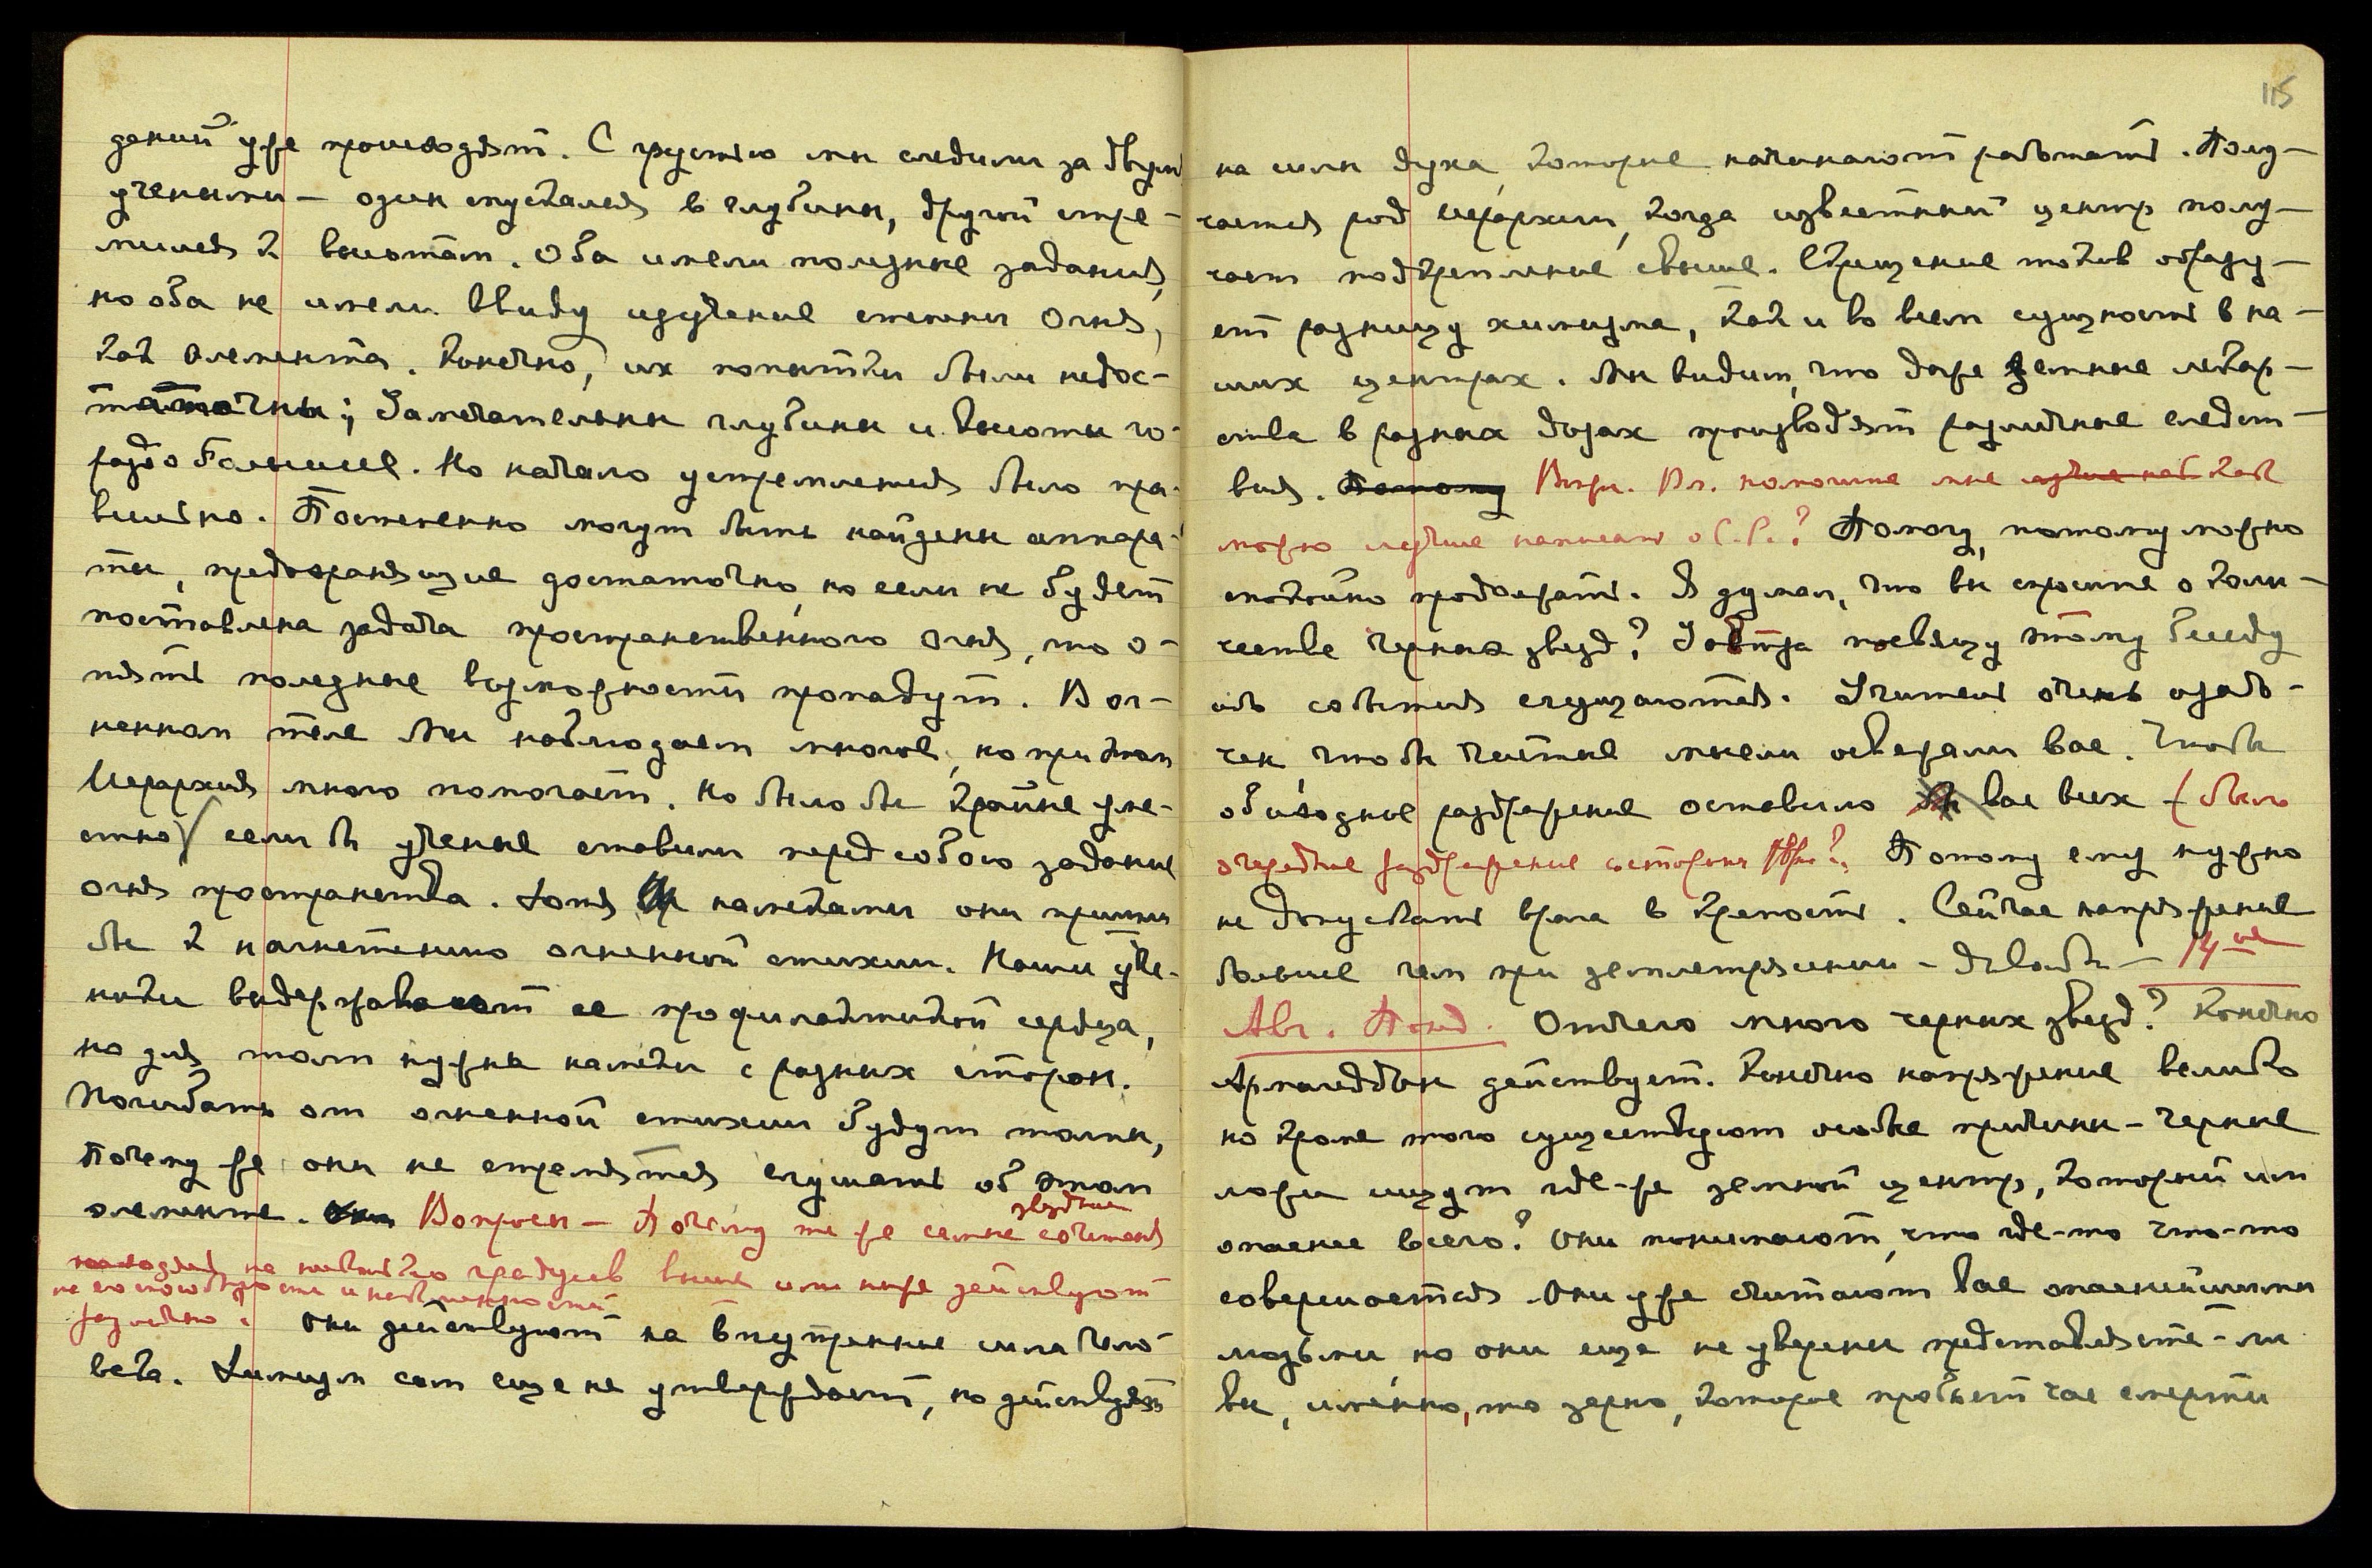 дений уже происходят. С грустью мы следили за двумя
учеными — один спускался в глубины, другой стре-
мился к высотам. Оба имели полезные задания,
но оба не имели ввиду изучение степени Огня,
как элемента. Конечно, их попытки были недос-
таточны; Замечательны глубины и высоты го-
раздо большие. Но начало устремления было пра-
вильно. Постепенно могут быть найдены аппара-
ты, предохраняющие достаточно, но если не будет
поставлена задача пространственного огня, то о-
пять полезные возможности пропадут. В ог-
ненном теле Мы наблюдаем многое, но при этом
Иерархия много помогает. Но было бы крайне уме-
стно если бы ученые ставили перед собою задание
огня пространства. Хотя бы намеками они пришли
бы к нагнетению огненной стихии. Наши уче-
ники выдерживают ее профилактикой сердца,
но для толп нужны намеки с разных сторон.
Погибать от огненной стихии будут толпы,
почему же они не стремятся слушать об этом
элементе. Вопросы — Почему те же самые сочетания
звездные
на несколько градусов выше или ниже действуют
различно? Они действуют на внутренние силы чело-
века. Химизм сам еще не утверждает, но действует
115
на силы духа, которые начинают работать. Полу-
чается род иерархии, когда известный центр полу-
чает подкрепление свыше. Скрещение токов образу-
ет разницу химизма, как и во всем сущность в на-
ших центрах. Мы видим, что даже земные лекар-
ства в разных дозах производят различные следст-
вия. Потому Вл. помогите мне как
можно лучше написать о С.С.? Помогу, потому можно
спокойно продолжать. Я думал, что вы спросите о коли-
честве черных звезд? Завтра посвящу этому беседу
ибо события сгущаются. Учитель очень озабо-
чен, чтобы чистые мысли освежали вас. Чтобы
обиходное раздражение оставило вас всех — (было
очередное раздражение со стороны Потому ему нужно
не допускать врага в крепость. Сейчас напряжение
больше чем при землетрясении — довольно — 14 ое
Авг. Понд. Отчего много черных звезд? Конечно
Армагеддон действует. Конечно напряжение велико
но кроме того существуют особые причины — черные
ложи ищут где-же земной центр, который им
опаснее всего? Они понимают, что где-то что-то
совершается. Они уже считают вас опаснейшими
людьми, но они еще не уверены представляете-ли
вы, именно, то зерно, которое пробьет час смерти